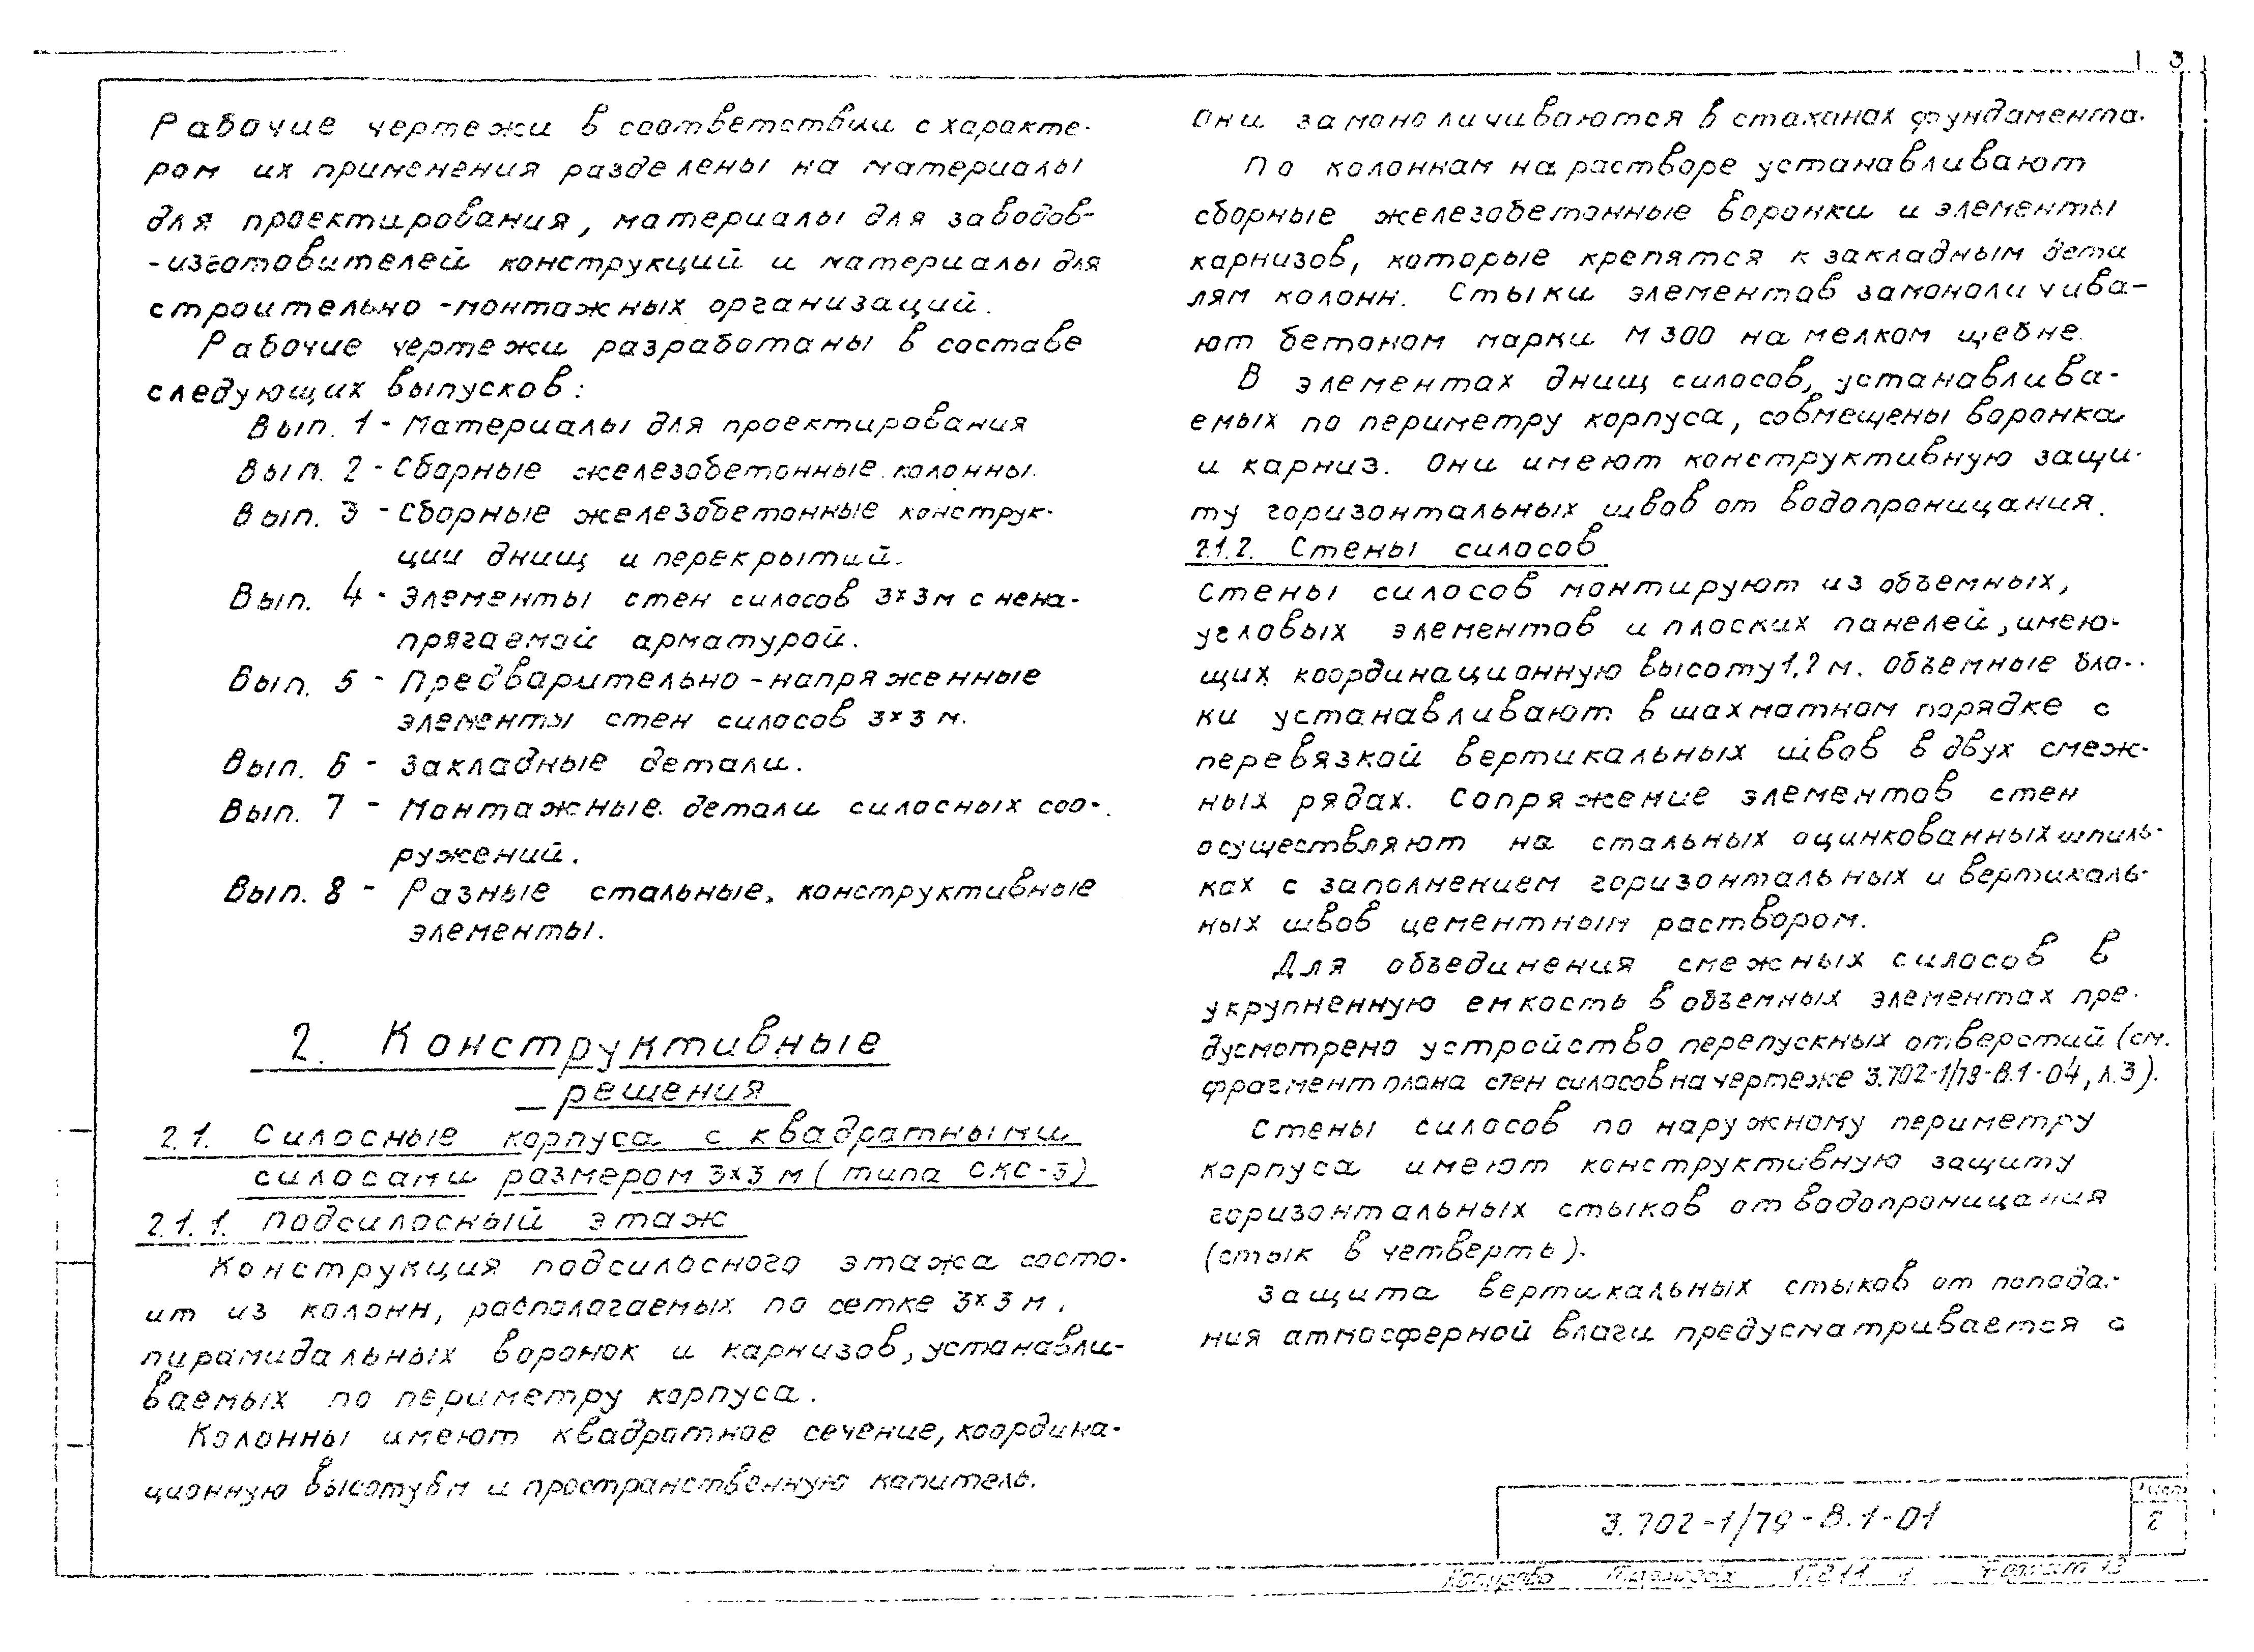 3
Рабочие чертежи в соответствии с характе-
ром их применения разделены на материалы
для проектирования, материалы для заводов-
-изготовителей конструкций и материалы для
строительно-монтажных организаций.
Рабочие чертежи разработаны в составе
следующих выпусков:
Вып. 1 - Материалы для проектирования
Вып. 2 - Сборные железобетонные колонны.
Вып. 3 - Сборные железобетонные конструк-
ции днищ и перекрытий.
Вып. 4 - Элементы стен силосов 3×3м с нена-
прягаемой арматурой.
Вып. 5 - Предварительно-напряженные
элементы стен силосов 3×3 м.
Вып. 6 - Закладные детали.
Вып. 7 - Монтажные детали силосных соо-
ружений.
Вып. 8 - Разные стальные конструктивные
элементы.
2. Конструктивные
решения
2.1. Силосные корпуса с квадратными
силосами размером 3×3 м (типа СКС-3)
2.1.1. Подсилосный этаж
Конструкция подсилосного этажа состо-
ит из колонн, располагаемых по сетке 3×3 м,
пирамидальных воронок и карнизов, устанавли-
ваемых по периметру корпуса.
Колонны имеют квадратное сечение, координа-
ционную высоту 6м и пространственную капитель.
Они замоноличиваются в стаканах фундамента.
По колоннам на растворе устанавливают
сборные железобетонные воронки и элементы
карнизов, которые крепятся к закладным дета
лям колонн. Стыки элементов замоноличива-
ют бетоном марки М300 на мелком щебне.
В элементах днищ силосов, устанавлива-
емых по периметру корпуса, совмещены воронка
и карниз. Они имеют конструктивную защи-
ту горизонтальных швов от водопроницания.
2.1.2. Стены силосов
Стены силосов монтируют из объемных,
угловых элементов и плоских панелей, имею-
щих координационную высоту 1,2 м. Объемные бло-
ки устанавливают в шахматном порядке с
перевязкой вертикальных швов в двух смеж-
ных рядах. Сопряжение элементов стен
осуществляют на стальных оцинкованных шпиль-
ках с заполнением горизонтальных и вертикаль-
ных швов цементным раствором.
Для объединения смежных силосов в
укрупненную емкость в объемных элементах пре-
дусмотрено устройство перепускных отверстий (см.
фрагмент плана стен силосов на чертеже 3.702-1/79-В.1-04, л.3).
Стены силосов по наружному периметру
корпуса имеют конструктивную защиту
горизонтальных стыков от водопроницания
(стык в четверть).
Защита вертикальных стыков от попада-
ния атмосферной влаги предусматривается с
3.702-1/79-В.1-01
Лист
2
Копировал 17811 Формат 13